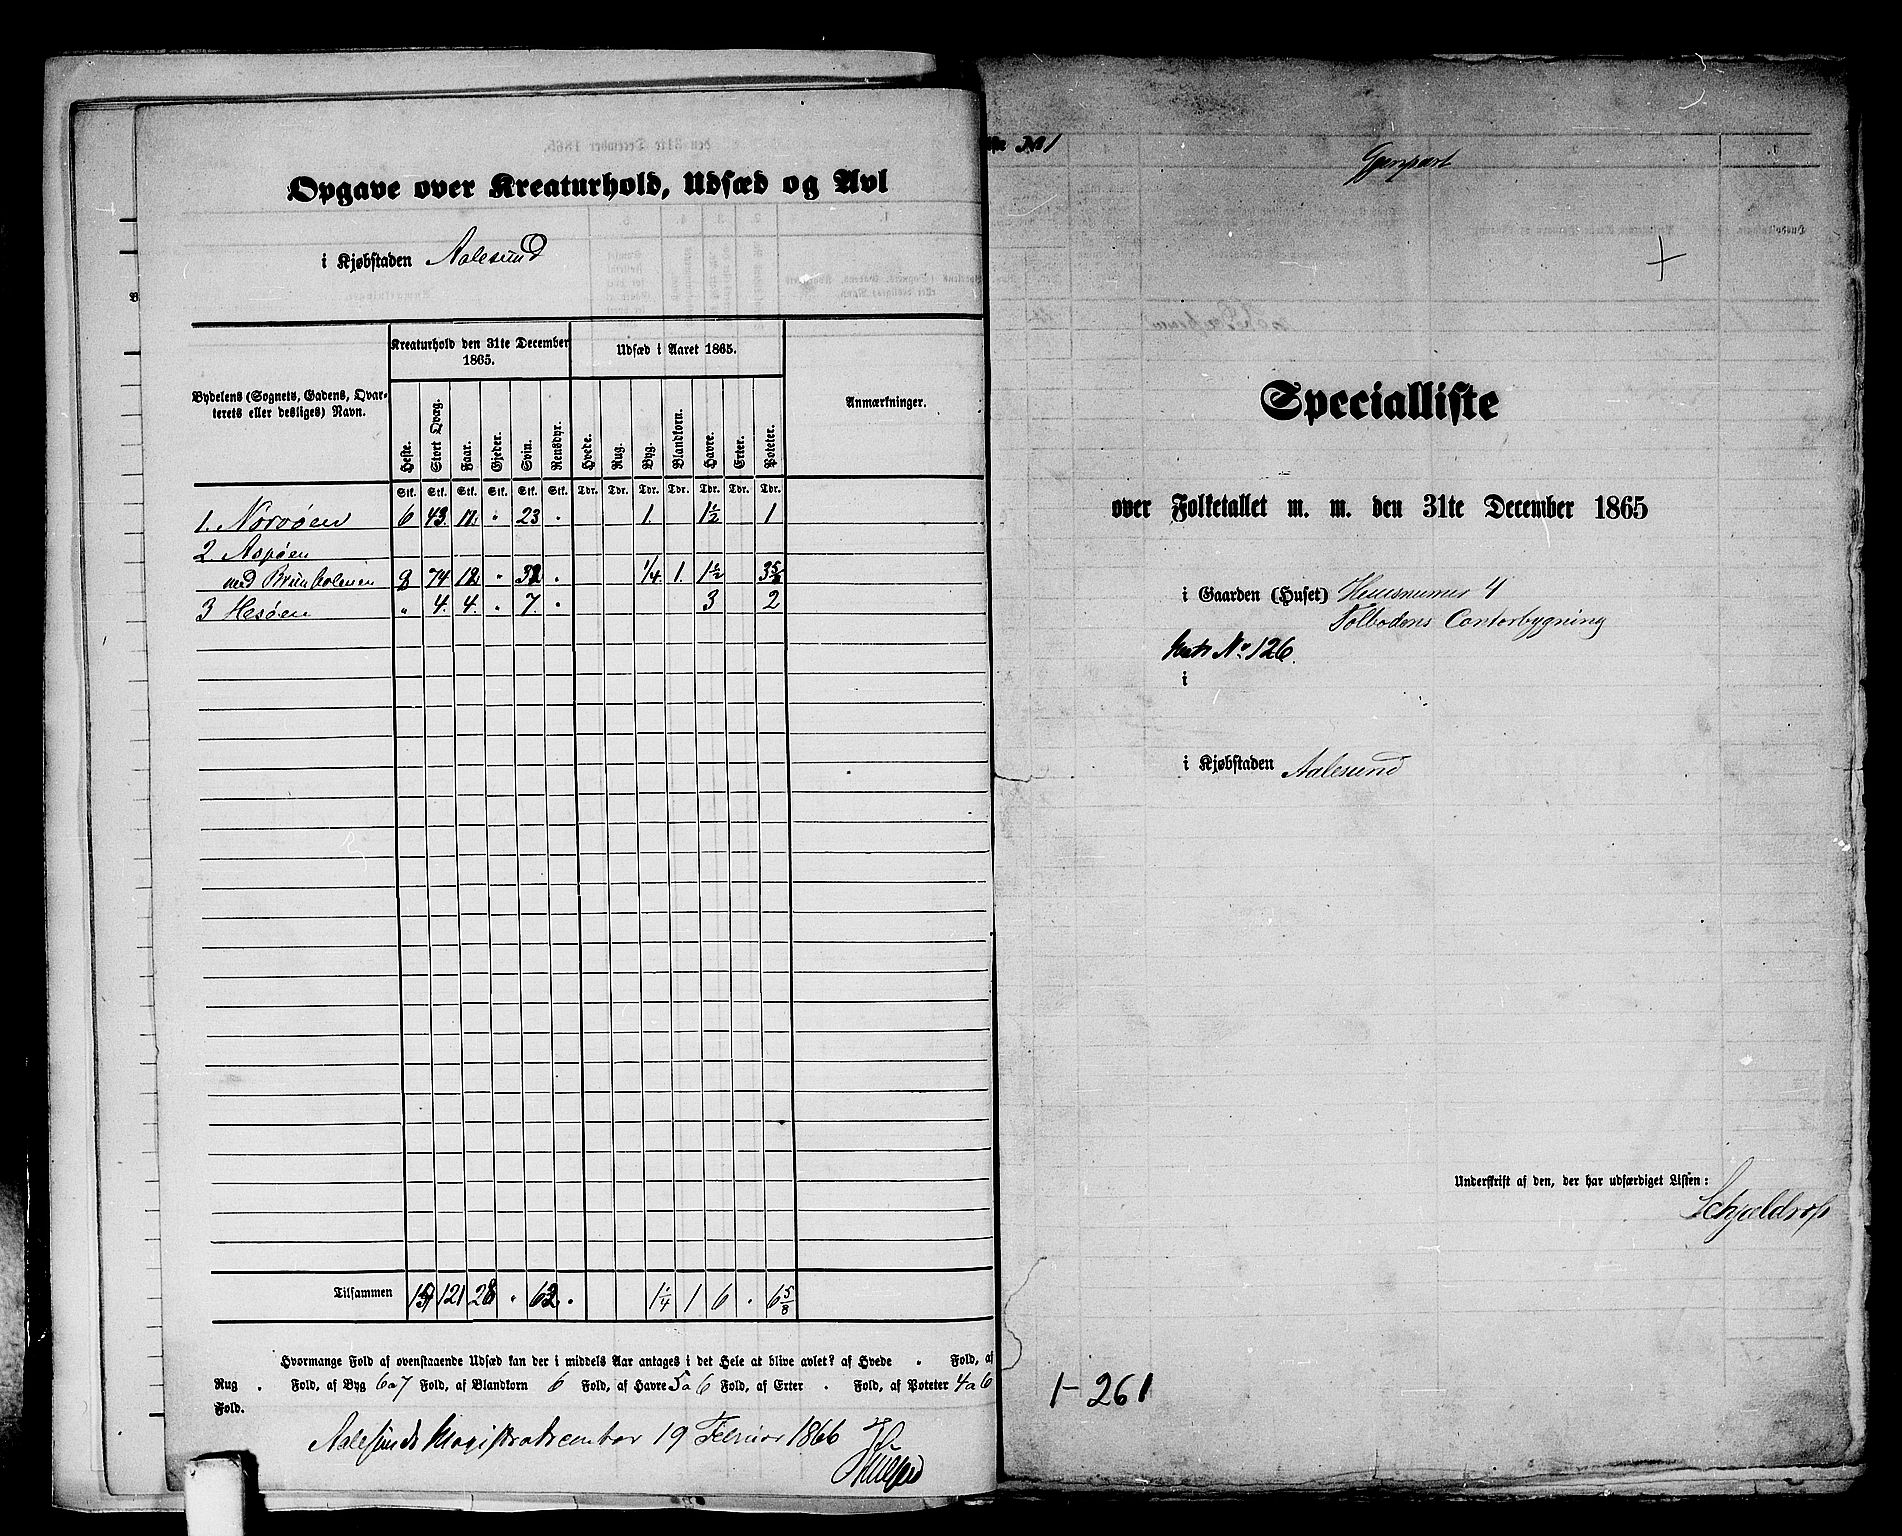 Opgave over Kreaturhold, Udsæd og Avl
i Kjøbstaden Aalesund
Bydelens (Sognets, Gadens, Qvarterets eller desliges) Navn.
Kreaturhold den 31te December 1865.
Udsæd i Aaret 1865.
Anmærkninger.
Heste. Stort Qvæg. Faar. Gjeder. Svin. Rensdyr. Hvede. Rug. Byg. Blandkorn. Havre. Erter. Poteter.
Stk. Stk. Stk. Stk. Stk. Stk. Tdr. Tdr. Tdr. Tdr. Tdr. Tdr. Tdr.
1. Norvøen 6 43. 12. " 23 " 1. 1 1/2 1
2 Aspøen
med Brunholmen 9 74 12 " 32 " 1/4. 1. 1 1/2 3 5/8
3 Hesøen " 4. 4. " 7. " 3 2
Tilsammen 15 121 28 " 62 " 1 1/4 1 6 " 6 5/8
Hvormange Fold af ovenstaaende Udsæd kan der i middels Aar antages i det Hele at blive avlet? af Hvede " Fold, af
Rug " Fold, af Byg 6a7 Fold, af Blandkorn 6 Fold, af Havre 5a6 Fold, af Erter " Fold, af Poteter 4a6
Fold.
Aalesunds Magistratscontor 19 Februar 1866
№ 1
Gjenpart
Specialliste
over Folketallet m. m. den 31te December 1865
i Gaarden (Huset) Huusnumer 4
Tolbodens Contorbygning
Matr No 126.
i
i Kjøbstaden Aalesund
Underskrift af den, der har udfærdiget Listen:
Schjeldrop
1-261